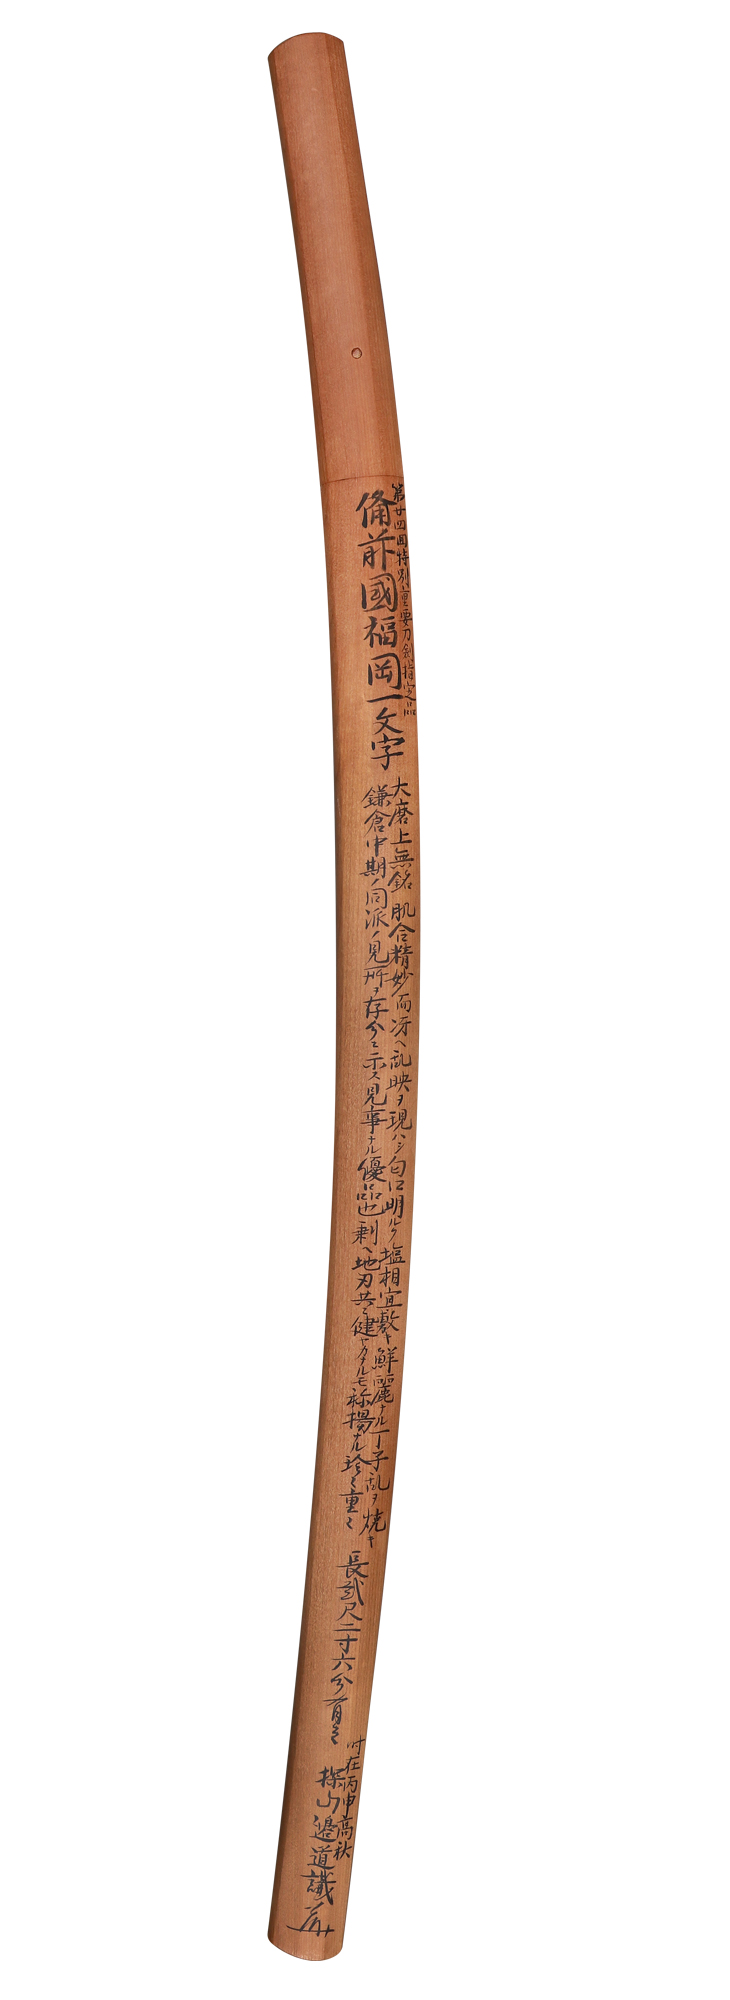 第廿四回特別重要刀剣指定品
備前國福岡一文字
大磨上無銘肌合精妙而冴ヘ乱映ヲ現ハシ匂口明ルク塩相宜敷キ鮮麗ナル丁子乱ヲ焼キ
鎌倉中期ノ同派ノ見所ヲ存分ニ示ス見事ナル優品也剰ヘ地刃共ニ健ヤカナルモ称揚ナル珍々重々
長弐尺二寸六分有之
时在丙申高秋
探山邉道識